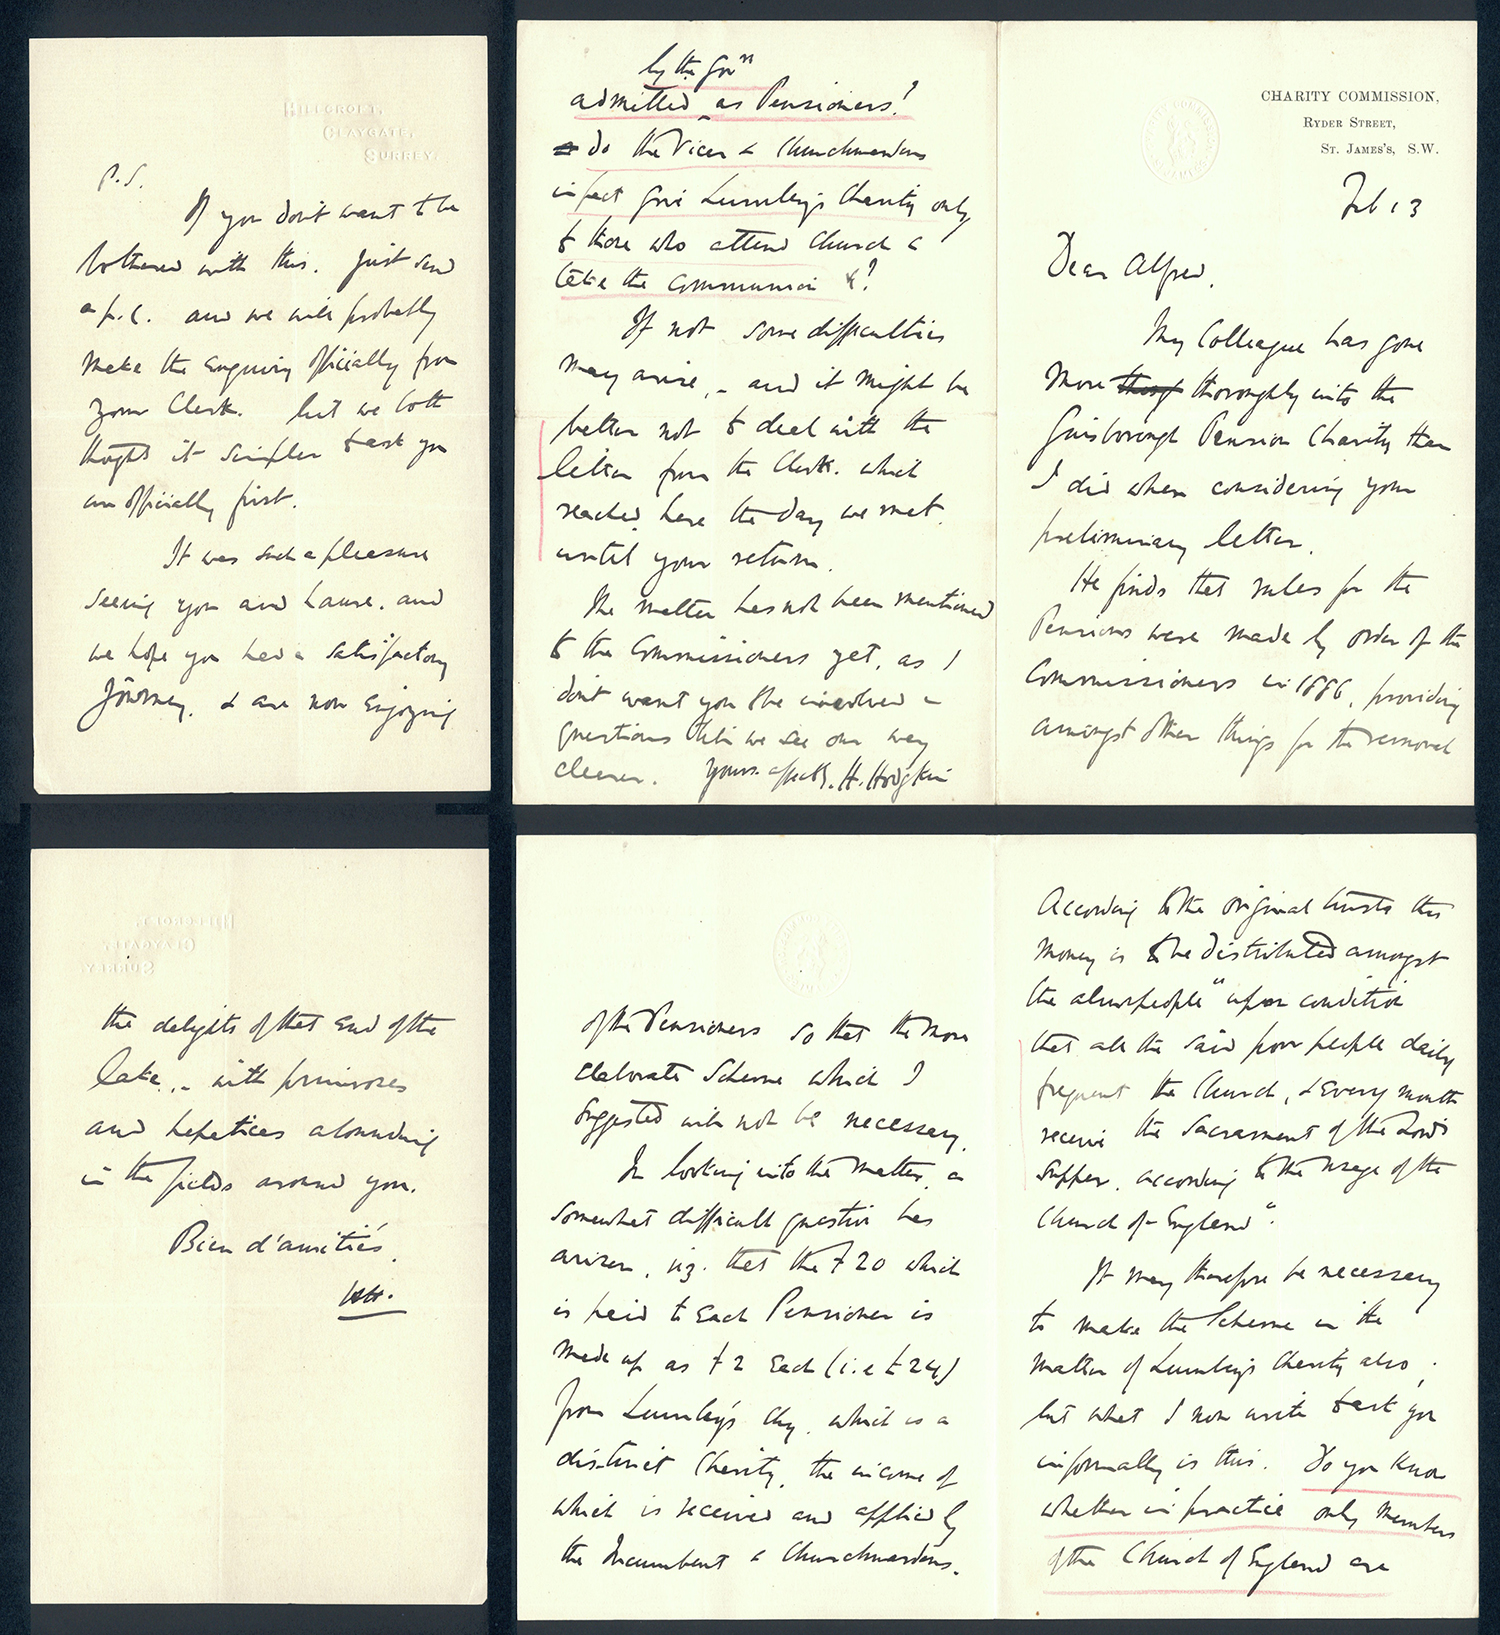 CHARITY COMMISSION,
RYDER STREET,
ST. JAMES'S, S.W.
Feb 13
Dear Alfred,
My Colleague has gone
more thoroughly into the
Guisborough Pension Charity than
I did when considering your
preliminary letter.
He finds that rules for the
Pensions were made by order of the
Commissioners in 1886, providing
amongst other things for the removal
of the Pensioners so that the more
elaborate Scheme which I
suggested will not be necessary.
In looking into the matter, a
somewhat difficult question has
arisen, viz. that the £20 which
is paid to each Pensioner is
made up as £2 each (i.e £24)
from Lumley's Chy. which is a
distinct Charity, the income of
which is received and applied by
the Incumbent & Churchwardens.
According to the original trusts this
money is to be distributed amongst
the almspeople "upon condition
that all the said poor people daily
frequent the Church, & every month
receive the Sacrament of the Lord's
Supper, according to the usage of the
Church of England".
It may therefore be necessary
to make the Scheme in the
matter of Lumley's Charity also;
but what I now write to ask you
informally is this. Do you know
whether in practice only members
of the Church of England are
by the Govrs
admitted as Pensioners?
do the Vicar & Churchwardens
in fact give Lumley's Charity only
to those who attend Church &
take the Communion?
If not some difficulties
may arise, - and it might be
better not to deal with the
letter from the Clerk, which
reached here the day we met,
until your return.
The matter has not been mentioned
to the Commissioners yet, as I
don't want you to be involved in
questions till we see our way
clearer. Yours affectly. H. Hodgkin
HILLCROFT,
CLAYGATE,
SURREY.
P.S.
If you don't want to be
bothered with this, just send
a p.c. and we will probably
make the enquiry officially from
your Clerk. but we both
thought it simpler to ask you
unofficially first.
It was such a pleasure
seeing you and and
we hope you had a satisfactory
journey, & are now enjoying
the delights of that end of the
lake, - with primroses
and hepaticas abounding
in the fields around you.
Bien d'amitiés,
HH.